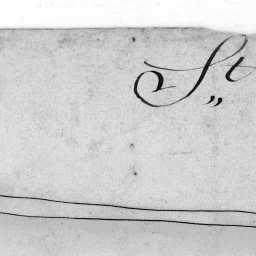 St„